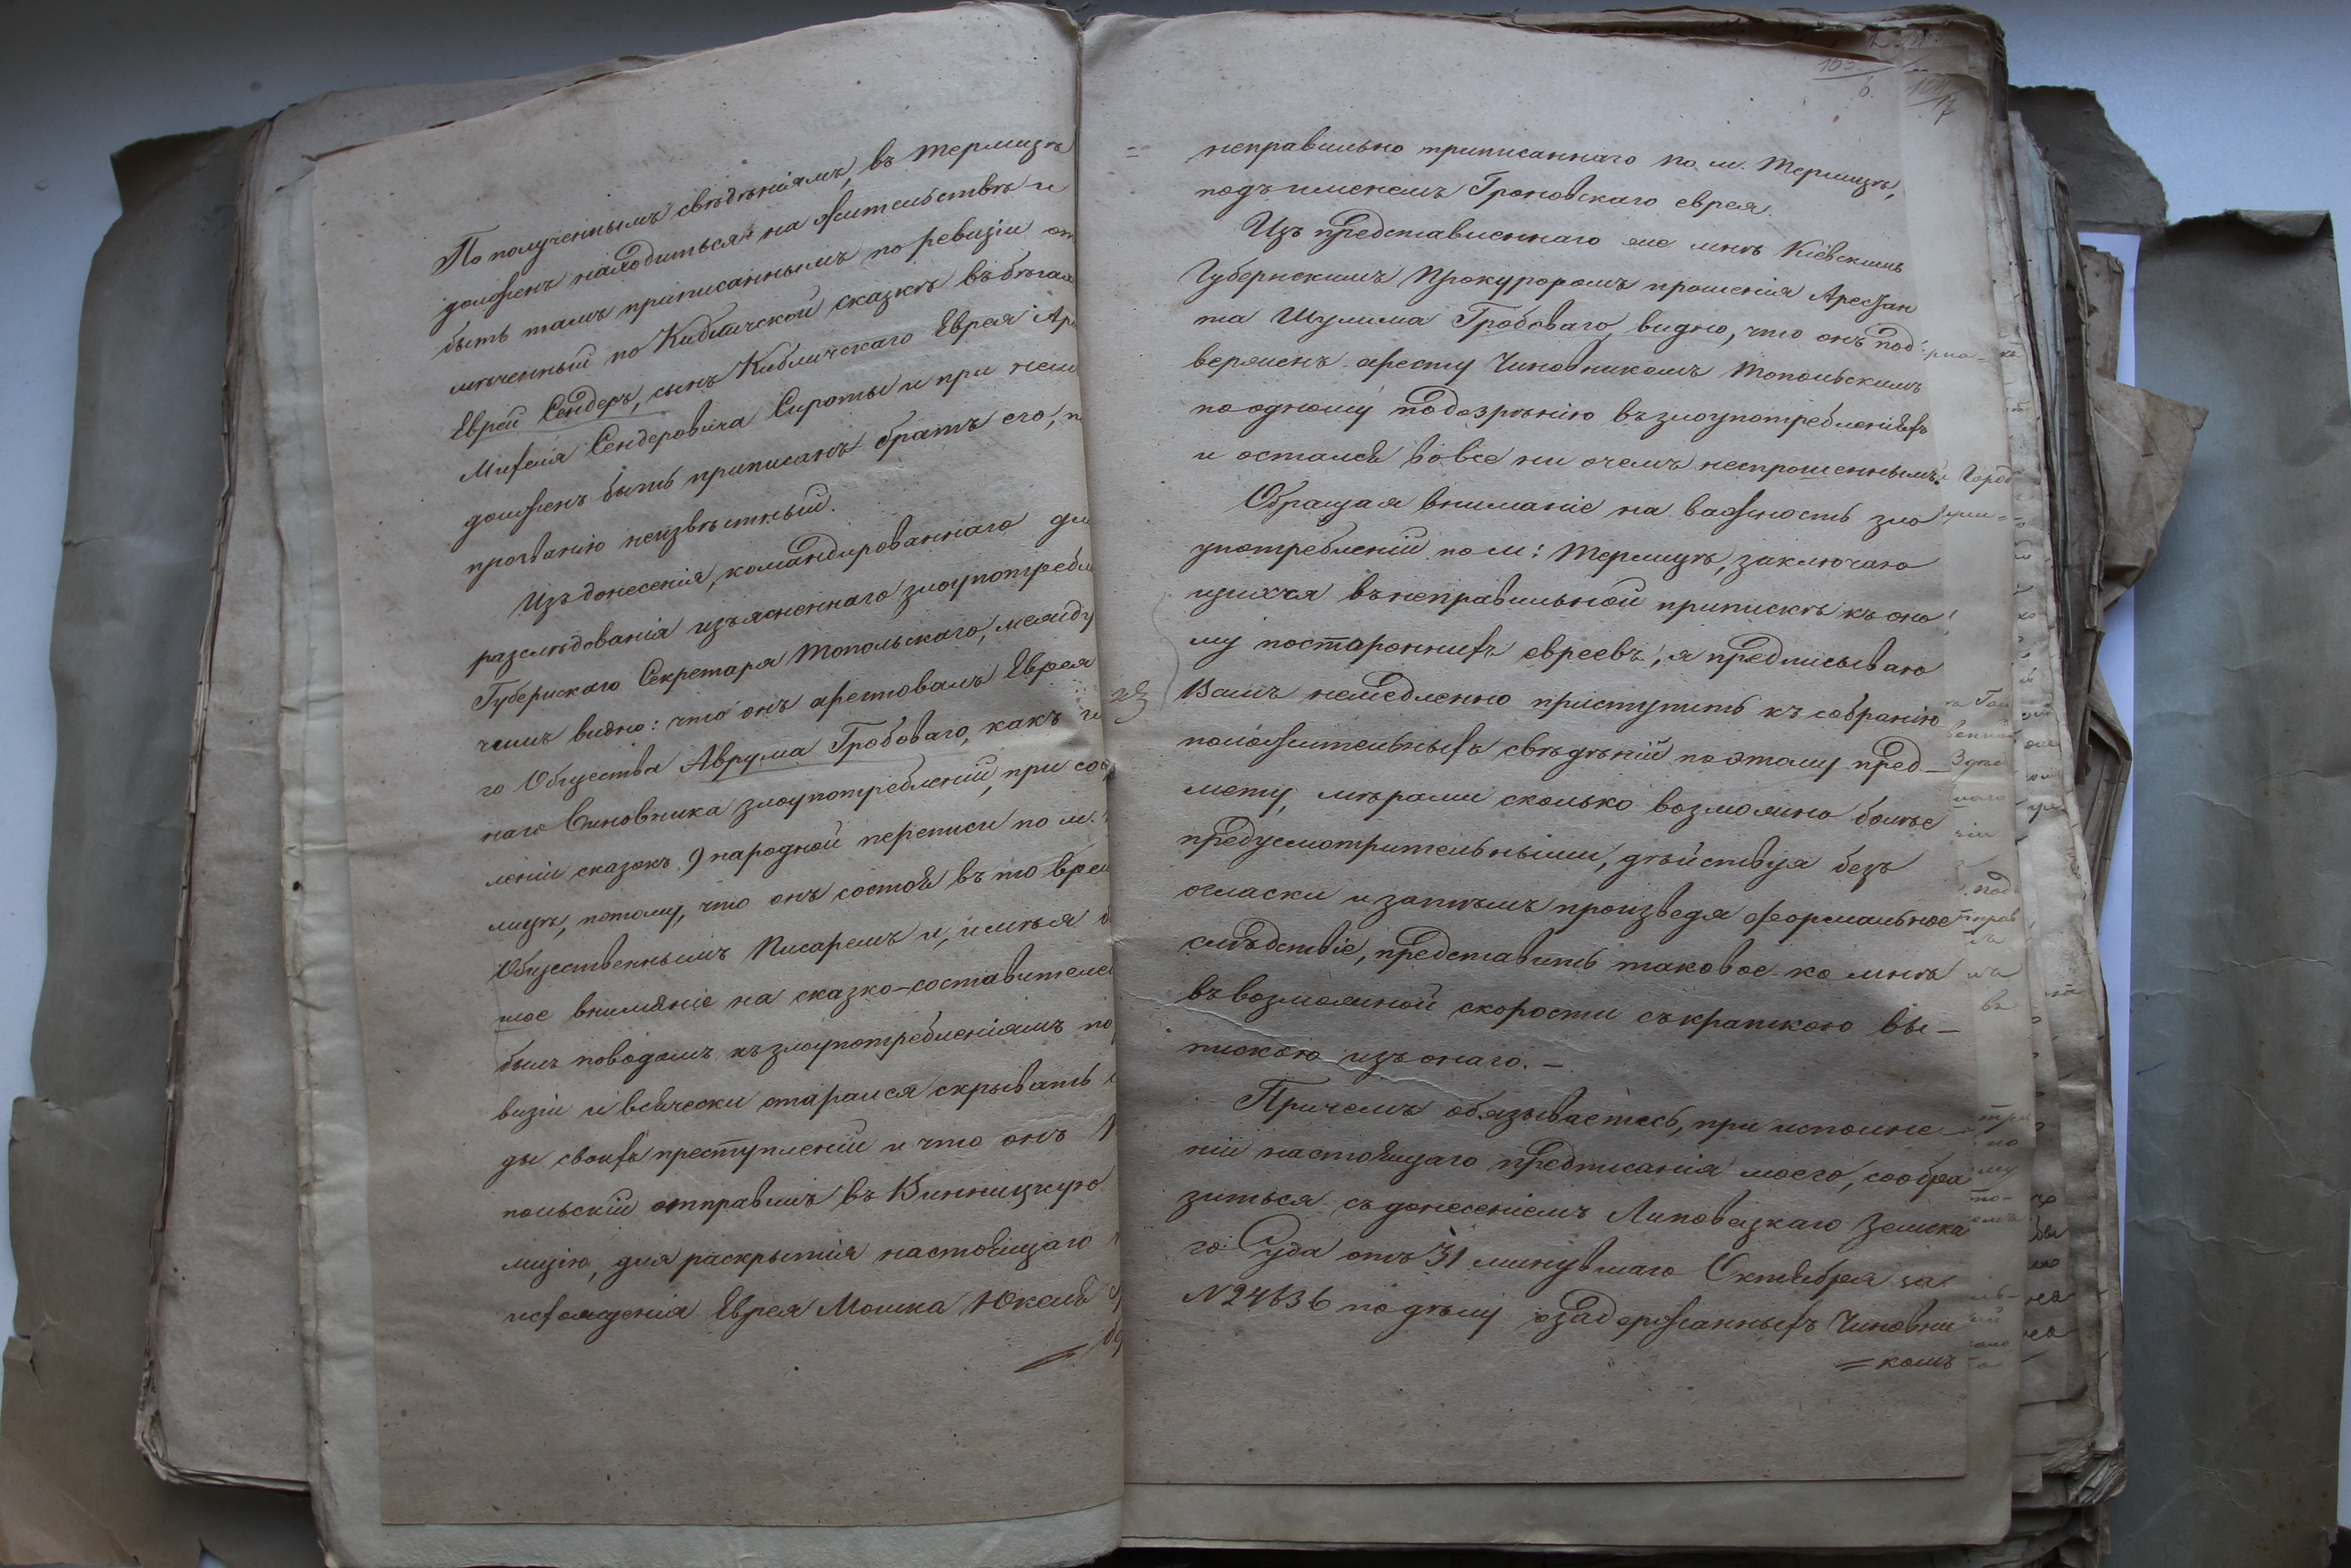 По полученнымъ свѣдѣніямъ, въ Терлицѣ
долженъ находиться на жительствѣ и
быть тамъ приписаннымъ по ревизіи от
мѣченный по Кибличской сказкѣ въ бѣгахъ
Еврей Сендеръ, сынъ Кибличскаго Еврея
Михеля Сендеровича Сироты и при немъ
долженъ быть приписанъ братъ его,
прозванію неизвѣстный.
Изъ донесенія, командированнаго для
разслѣдованія изъясненнаго злоупотребле
Губернскаго Секретаря Топольскаго, между
чимъ видно: что онъ арестовалъ Еврея
го Общества Аврума Гробоваго, какъ
наго виновника злоупотребленій, при
леніи сказокъ 9 народной переписи по м.
лицѣ, потому, что онъ состоя въ то врем
Общественнымъ Писаремъ и, имѣя
шое вниманіе на сказко-составителей
былъ поводомъ къ злоупотребленіямъ по
визіи и всячески старался скрывать
ды своихъ преступленій и что онъ
польскій отправилъ въ Винницкую
лицію, для раскрытія настоящаго
исхожденія Еврея Мошка Юкеля
103
6.
неправильно приписаннаго по м. Терлицѣ,
подъ именемъ Гроновскаго еврея.
Изъ представленнаго же мнѣ Кіевскимъ
Губернскимъ Прокуроромъ прошенія Арестан
та Шулима Гробоваго, видно, что онъ под
верженъ аресту Чиновникомъ Топольскимъ
по одному подозрѣнію въ злоупотребленіяхъ
и остался вовсе ни о чемъ неспрошеннымъ.
Обращая вниманіе на важность зло
употребленій по м: Терлицѣ, заключаю
щихся въ неправильной припискѣ къ оно
му постороннихъ евреевъ, я предписываю
Вамъ немедленно приступить къ собранію
положительныхъ свѣдѣній по этому пред-
мету, мѣрами сколько возможно болѣе
предусмотрительными, дѣйствуя безъ
огласки и затѣмъ произведя формальное
слѣдствіе, представить таковое ко мнѣ
въ возможной скорости съ краткою вы-
пискою изъ онаго. -
Причемъ обязываетесь, при исполне
ніи настоящаго предписанія моего, сообра
зиться съ донесеніемъ Липовецкаго Земска
го Суда отъ 31 минувшаго Октября за
№ 24636 по дѣлу о задержанныхъ Чиновни
= комъ